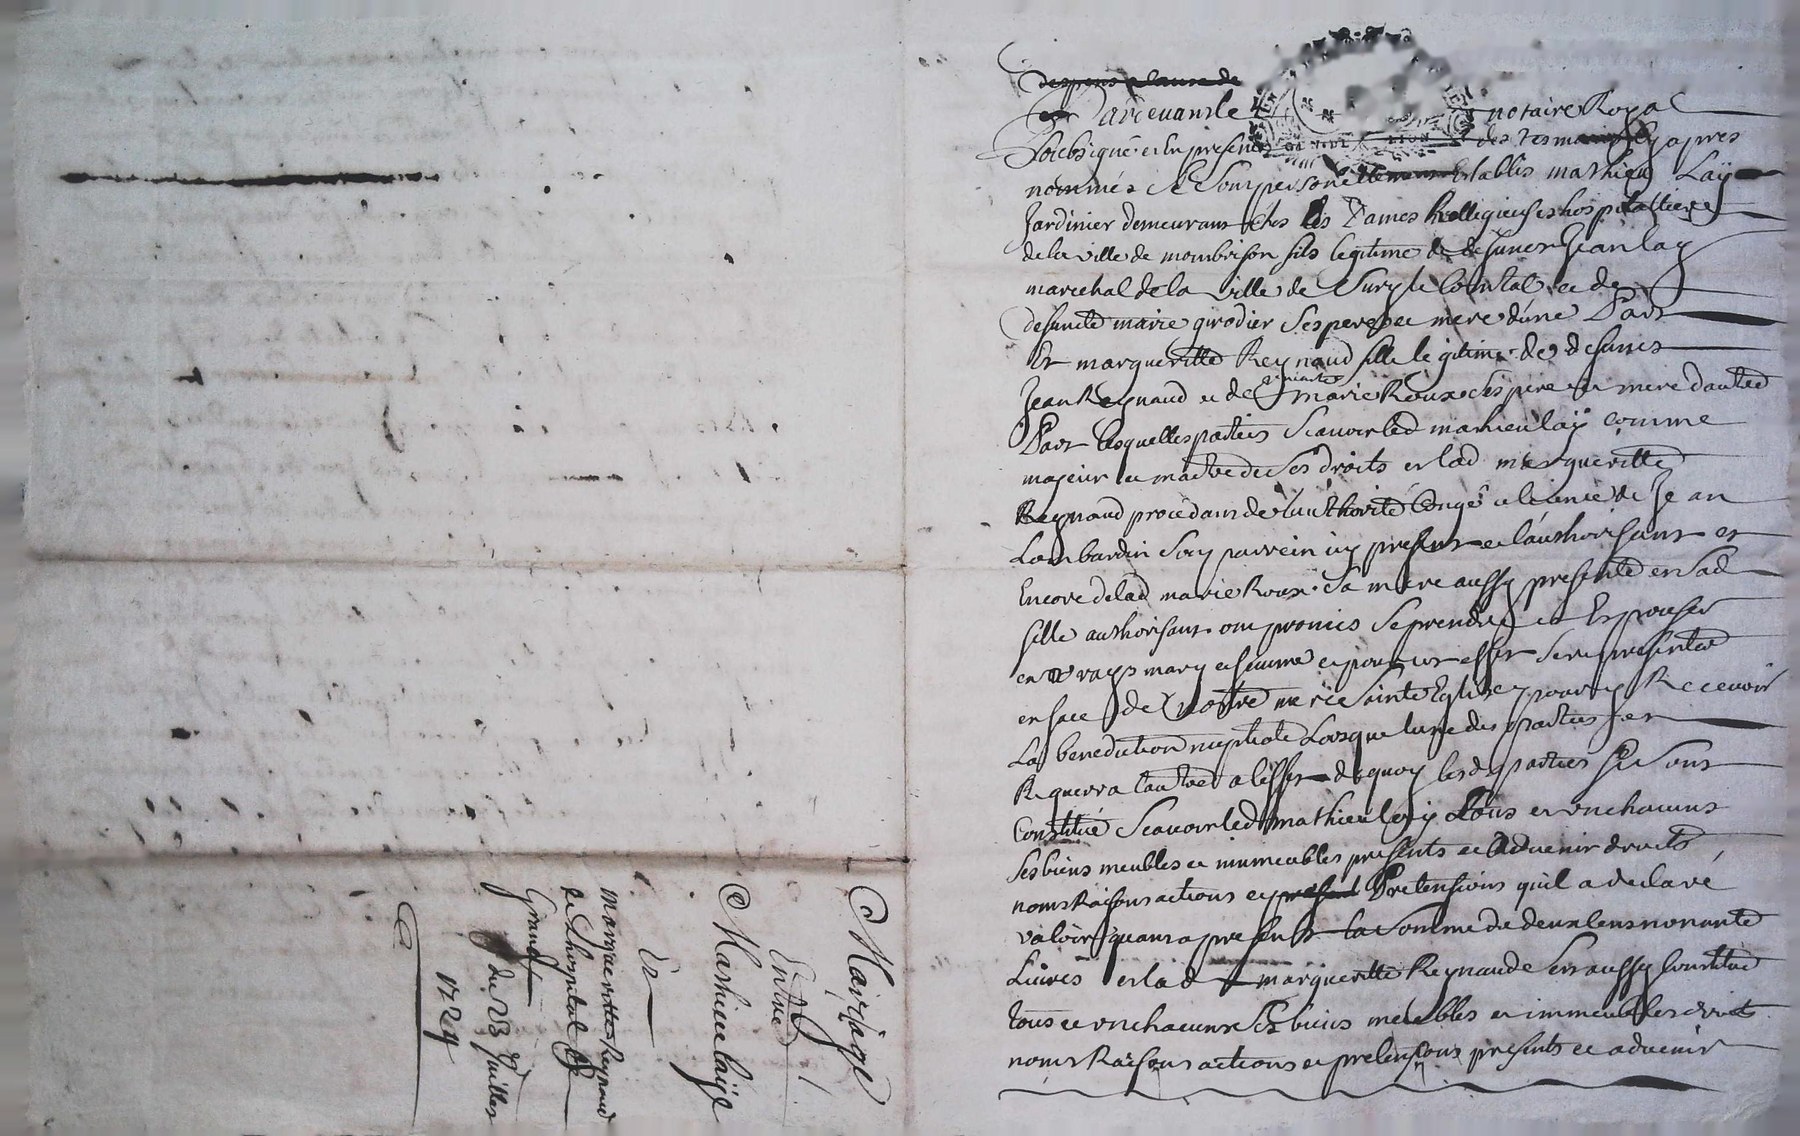 Mariage
Entre
Mathieu laÿe
Et
margueritte Reynaud
de Lhospital
Grand
du 23e Juillet
1729
despens clause de
Pardevant le notaire Royal
soubsigné et en presence des tesmoins cy apres
nommés se sont personellement Establis mathieu Laÿ
Jardinier demeurant ches les Dames Relligieuses hospitallieres
de la ville de monbrison fils legitime de defunct Jean lay
marechal de la ville de Sury le Comtal et de
defuncte marie girodier ses pere et mere d'une Part
Et margueritte Reynaud fille legitime de defunct
Jean Reynaud et de marie Roux ses pere et mere dautre
Part lesquelles parties scavoir led mathieu laÿ comme
majeur et maitre de ses droits et lad margueritte
Reynaud procedant de l'authorité Congé et licence de Jean
Lombardin son parrein icy present et l'authorisant et
Encore de lad marie Roux sa mere aussy presente et sad
fille authorisant ont promis se prendre et Espouser
en vrays mary et femme et pour cet effet se representer
en face de nostre mere Sainte Eglise pour y Recevoir
La benediction nuptiale Lorsque l'une des parties en
Requerra l'autre a leffet de quoy lesd parties se sont
Constitué scavoir led mathieu laÿ tous et un chacuns
ses biens meubles et immeubles presents et advenir droits
noms Raisons actions et Pretensions qu'il a declaré
valoir quant a present la somme de deux cens nonante
Livres et lad margueritte Reynaud sest aussy Constitué
tous et un chacuns ses biens meubles et immeubles droits
noms Raisons actions et pretensions presents et advenir